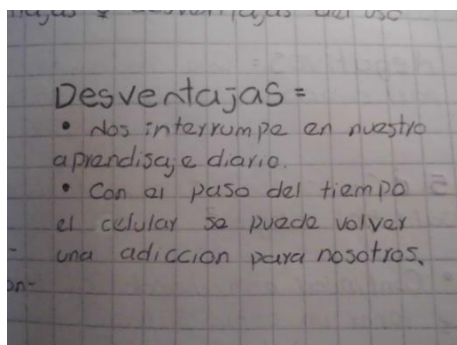 ventajas y desventajas del uso
Desventajas =
• Nos interrumpe en nuestro
aprendisaje diario.
• Con el paso del tiempo
el celular se puede volver
una adiccion para nosotros.
on-